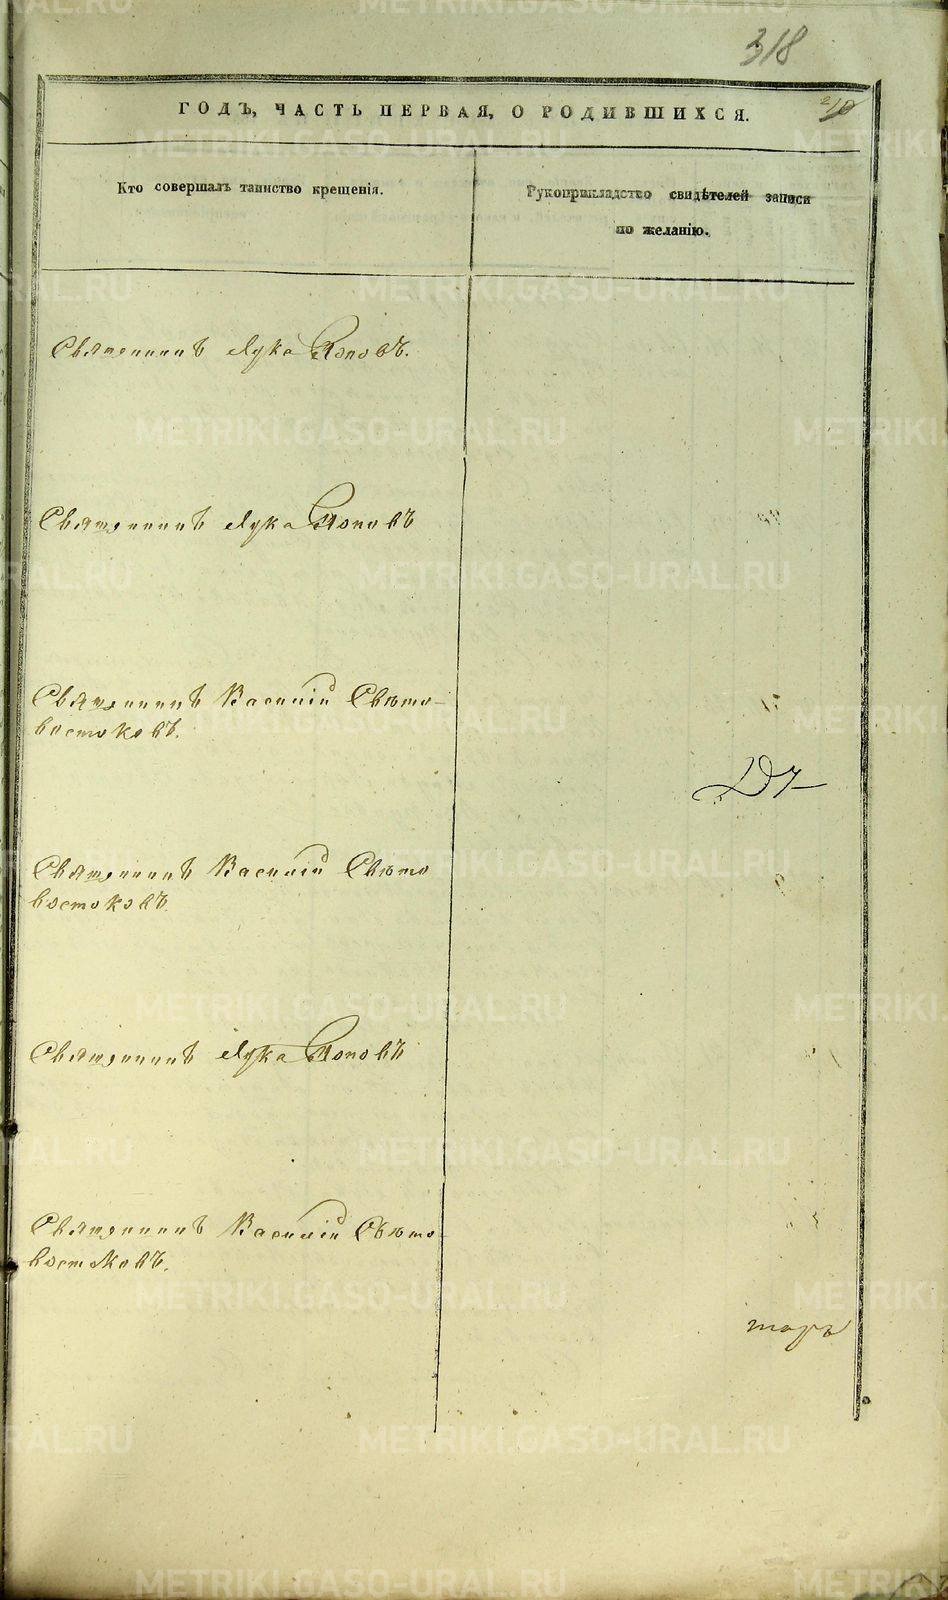 318
ГОДЪ, ЧАСТЬ ПЕРВАЯ, О РОДИВШИХСЯ.
Кто совершалъ таинство крещенія.
Рукоприкладство свидѣтелей записи
по желанію.
Священникъ Лука Поповъ.
Священникъ Лука Поповъ
Священникъ Василій Свѣто-
востоковъ.
Священникъ Василій Свѣто
востоковъ.
Священникъ Лука Поповъ
Священникъ Василій Свѣто-
востоковъ.
METRIKI.GASO-URAL.RU